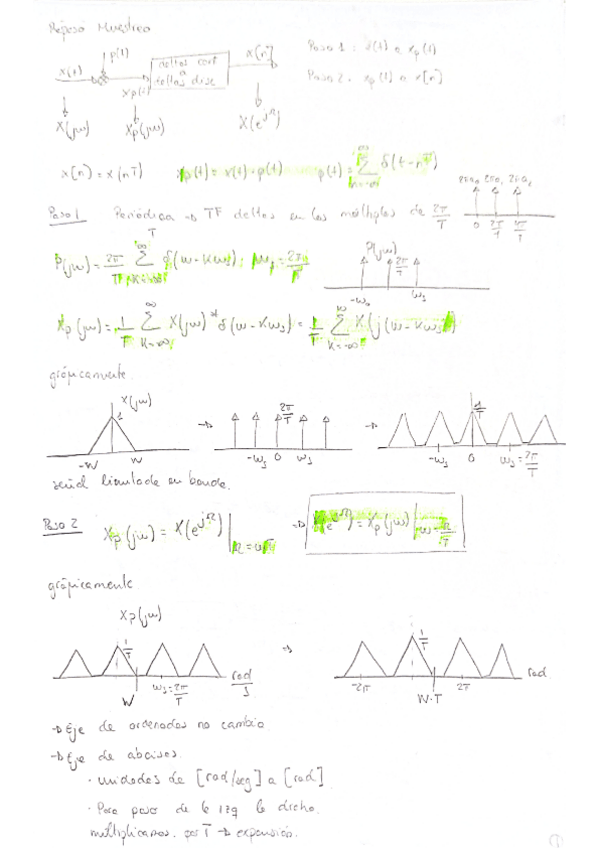 Repaso Muestreo
p(t)
x(t)
deltas cont
a
deltas disc
x[n]
xp(t)
X(jω) Xp(jω) X(e^{jΩ})
Paso 1: x(t) a xp(t)
Paso 2: xp(t) a x[n]
x[n] = x(nT) xp(t) = x(t)·p(t) p(t) = Σ_{n=-∞}^{∞} δ(t-nT)
Paso 1 Periódica → TF deltas en los múltiplos de 2π/T
0 2π/T 4π/T
T
P(jω) = 2π/T Σ_{K=-∞}^{∞} δ(ω-Kωs); ωs = 2π/T
P(jω)
2π/T
ωs
Xp(jω) = 1/T Σ_{K=-∞}^{∞} X(jω) * δ(ω-Kωs) = 1/T Σ_{K=-∞}^{∞} X(j(ω-Kωs))
gráficamente
X(jω)
1
-W W
2π/T
-ωs 0 ωs
1/T
-ωs 0 ωs = 2π/T
señal limitada en banda.
Paso 2 Xp(jω) = X(e^{jΩ})|_{Ω=ωT} → X(e^{jΩ}) = Xp(jω)|_{ω=Ω/T}
gráficamente
Xp(jω)
1/T
W ωs = 2π/T
rad/s
1/T
-2π W·T 2π
rad
→ Eje de ordenadas no cambia
→ Eje de abcisas.
· unidades de [rad/seg] a [rad]
· Para pasar de la izq a la drcha.
multiplicamos por T → expansión.
1